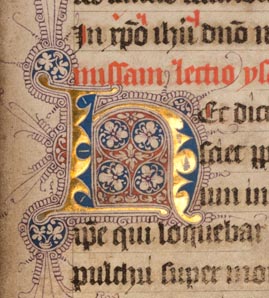 In xp̄o ihū dño n
missam, lectio ys
Hec dic
sciet p
ium in
ipse qui loquebar
pulchri super mo